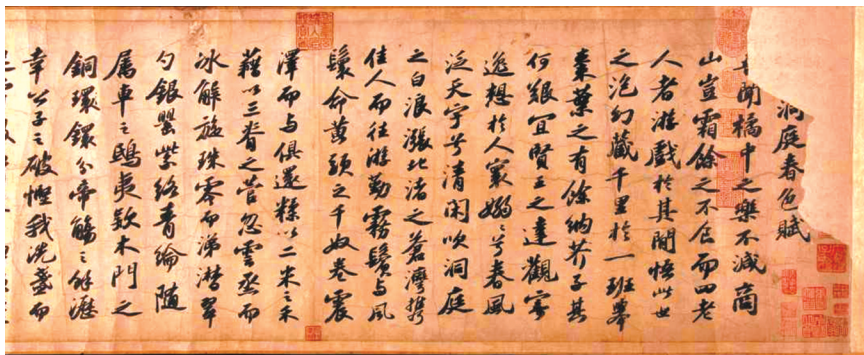 洞庭春色賦
聞橘中之樂不減商
山豈霜餘之不食而四老
人者游戲於其間悟此世
之泡幻藏千里於一班舉
棗葉之有餘納芥子其
何艱宜賢王之達觀寄
逸想於人寰嫋〻兮春風
泛天宇兮清閑吹洞庭
之白浪漲北渚之蒼灣攜
佳人而往游勤霧鬢与風
鬟命黃頭之千奴卷震
澤而与俱還糅以二米之禾
藉以三脊之菅忽雲烝而
冰解旋珠零而涕潸翠
勺銀罌紫絡青綸隨
属車之鴟夷款木門之
銅環鐶分帝觴之餘瀝
幸公子之破慳我洗盞而